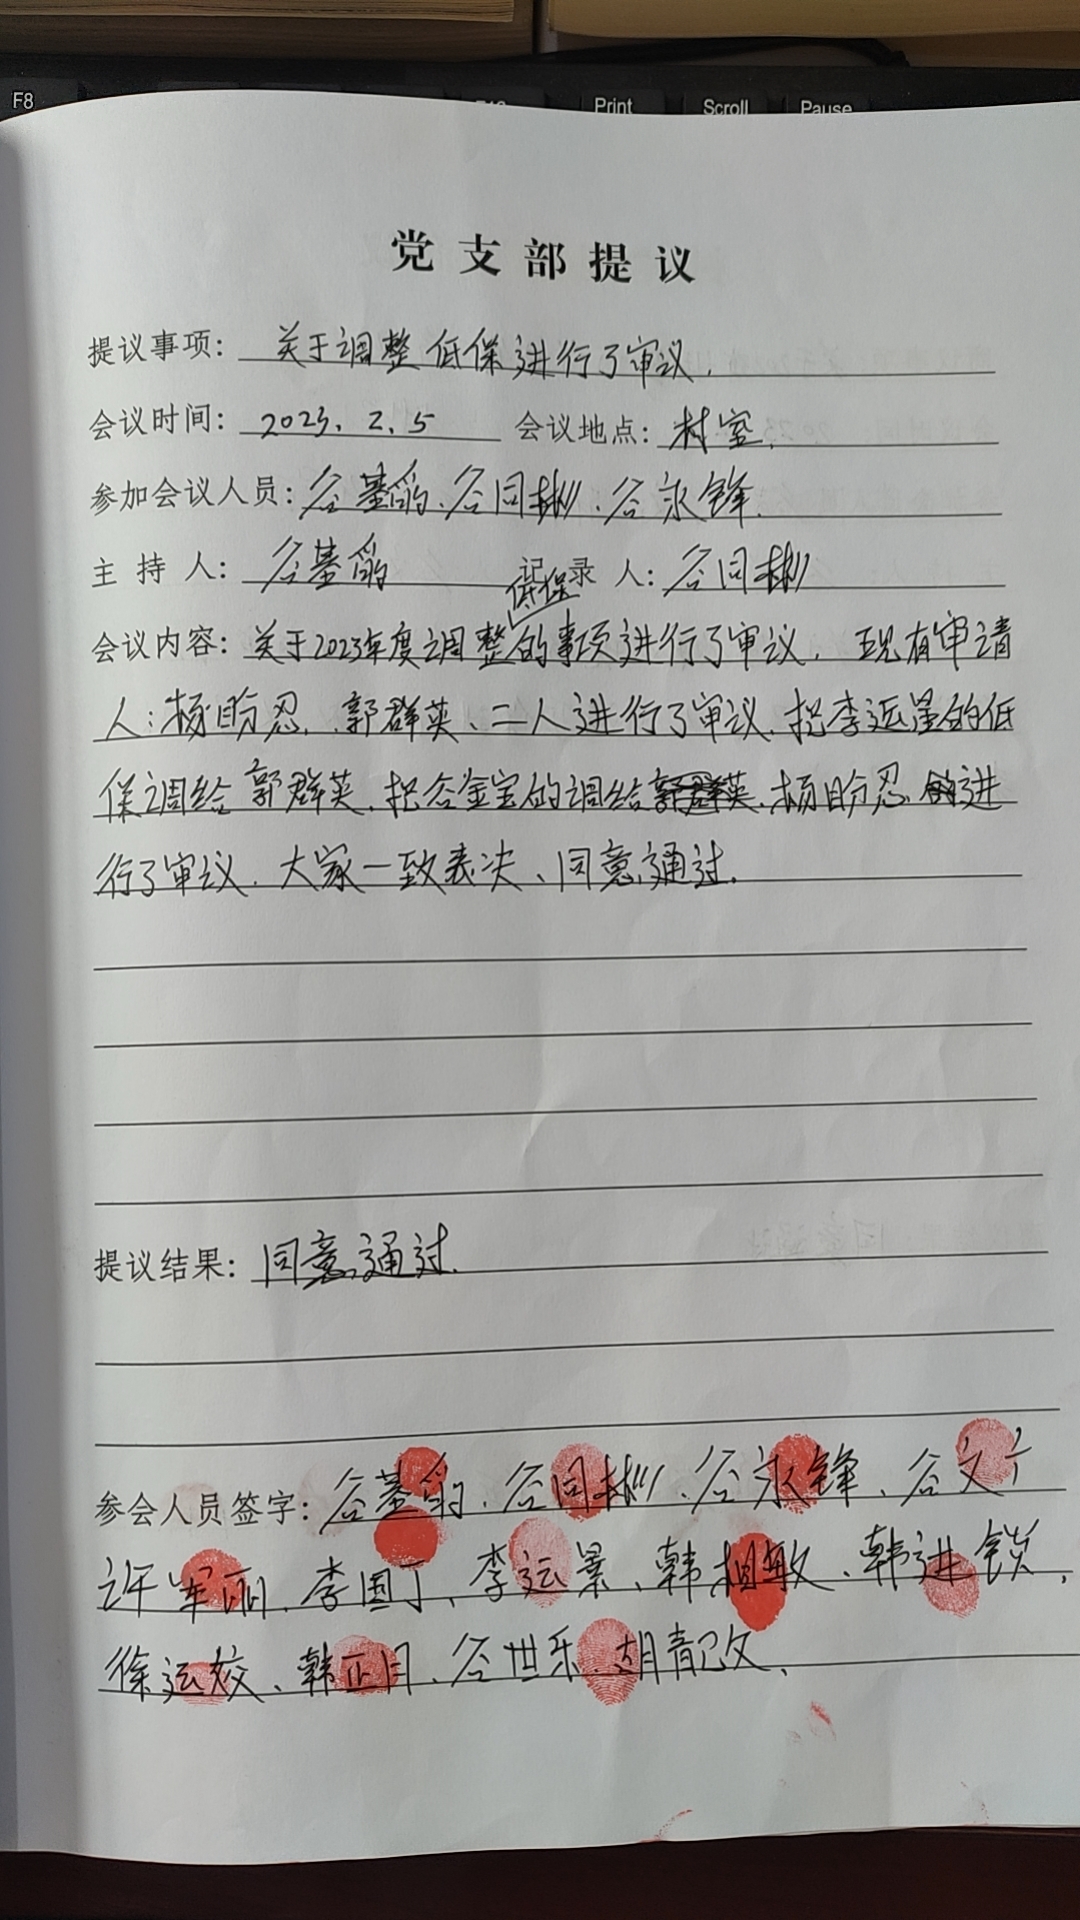 F8
Print Scroll Pause
党支部提议
提议事项: 关于调整低保进行了审议.
会议时间: 2023.2.5 会议地点: 村室.
参加会议人员: 谷基、谷同彬、谷永锋.
主持人: 谷基 记录人: 谷同彬
低保
会议内容: 关于2023年度调整的事项进行了审议. 现有申请
人: 杨盼忍. 郭群英、二人进行了审议. 把李运景的低
保调给郭群英. 把谷金宝的调给 杨盼忍 进
行了审议. 大家一致表决、同意通过.
提议结果: 同意通过.
参会人员签字: 谷基、谷同彬、谷永锋、谷文
许军丽、李国丁、李运景、韩相敏、韩进锁,
徐运姣、韩正月、谷世乐、胡青改、